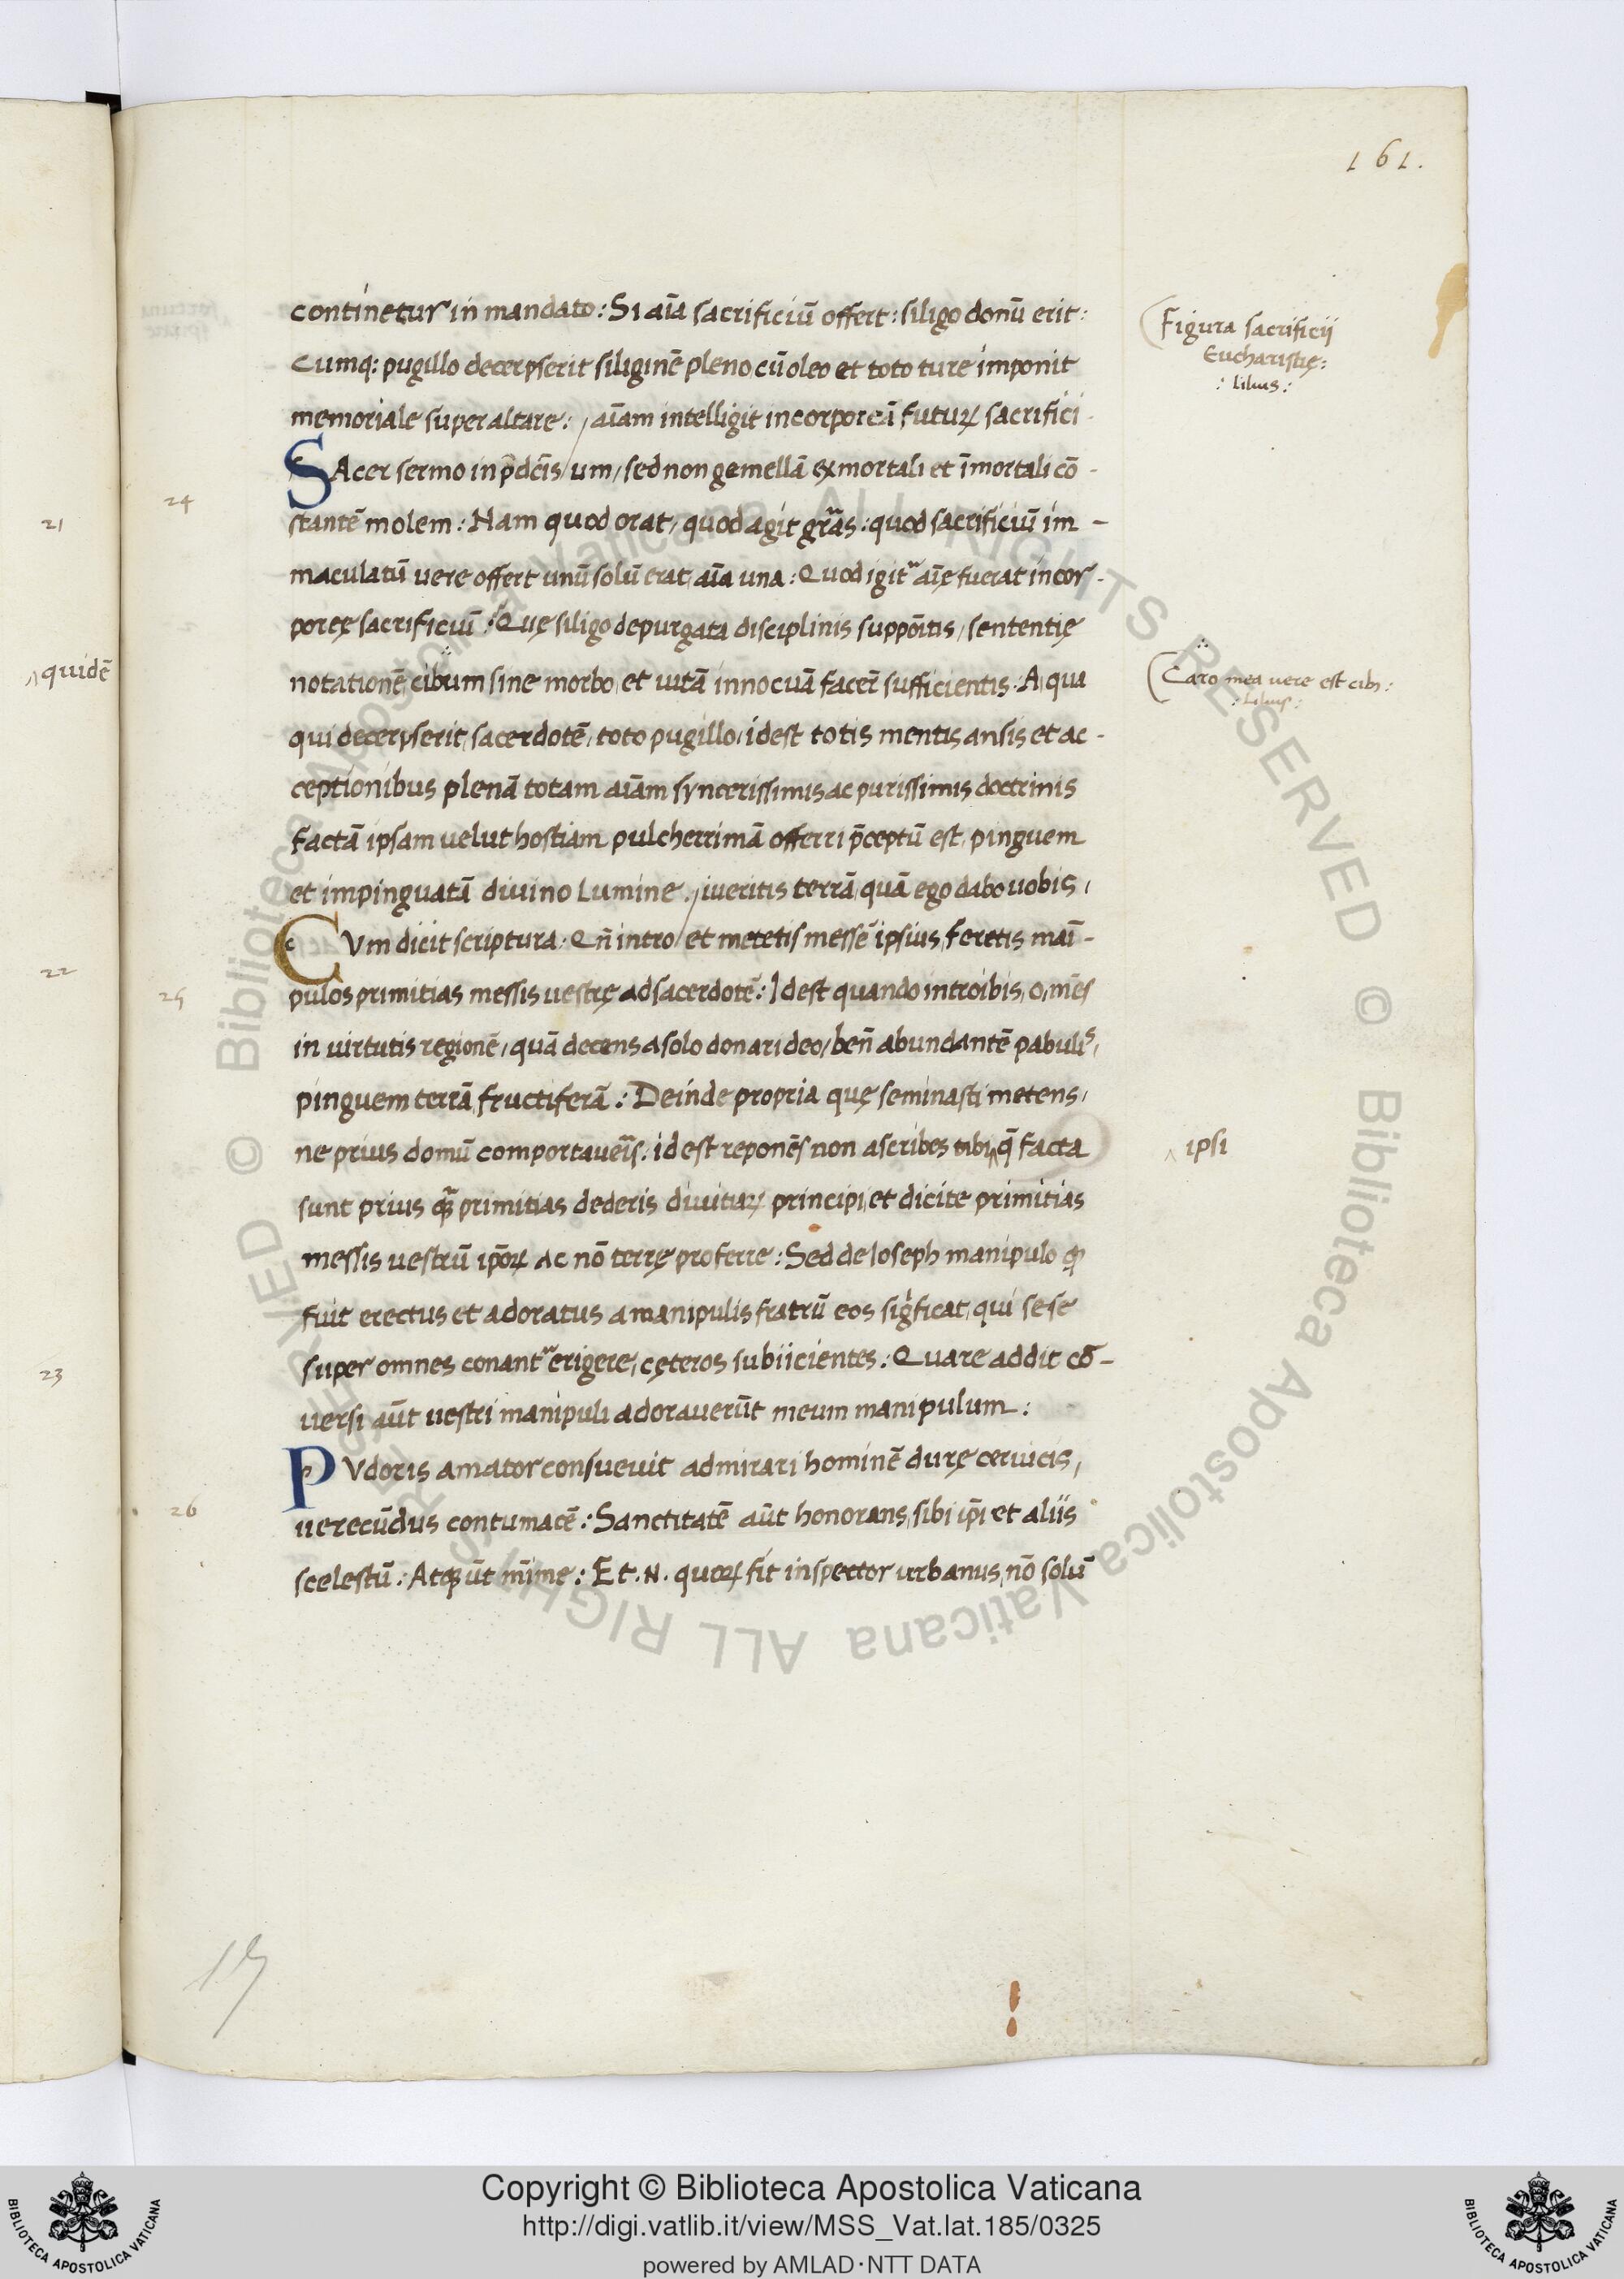 161.
continetur in mandato: Si aīa sacrificiū offert: siligo donū erit:
Cumq: pugillo decerpserit siliginē pleno cū oleo et toto ture imponit
memoriale super altare: / aīam intelligit incorporeā futuꝝ sacrifici
SAcer sermo in p̄dc̄is / um, sed non gemellā ex mortali et īmortali cō-
stantē molem: Nam quod orat, quod agit gr̄as: quod sacrificiū im-
maculatū vere offert unū solū erat aīa una: Quod igitr aīę fuerat incor-
poreę sacrificiū: Quę siligo depurgata disciplinis suppōitis, sententię
notationē cibum sine morbo et vitā innocuā facer̄ sufficientis. A qua
qui decerpserit sacerdotē, toto pugillo, idest totis mentis ansis et ac-
ceptionibus plenā totam aīam syncerissimis ac purissimis doctrinis
factā ipsam velut hostiam pulcherrimā offerri p̄ceptū est, pinguem
et impinguatā divino Lumine. / iveritis terrā quā ego dabo vobis,
CVm dicit scriptura: Qn̄ intro / et metetis messē ipsius, feretis maī-
pulos primitias messis vestrę ad sacerdotē: Idest quando introibis, o, mēs
in virtutis regionē, quā decens a solo donari deo, ben̄ abundantē pabulis,
pinguem terrā fructiferā: Deinde propria quę seminasti metens,
ne prius domū comportaveīs: idest reponēs non ascribes tibi q̄ facta
sunt prius qꝫ primitias dederis divitiaꝝ principi, et dicite primitias
messis vestrū ipōꝝ ac nō terrę proferre: Sed de Ioseph manipulo qꝫ
fuit erectus et adoratus a manipulis fratrū eos sigficat, qui sese
super omnes conantr erigere, cęteros subiicientes: Quare addit cō-
versi aūt vestri manipuli adoraverūt meum manipulum:
PVdoris amator consuevit admirari hominē durę cervicis,
verecūdus contumacē: Sanctitatē aūt honorans, sibi ip̄i et aliis
scelestū: Atqꝫ ūt mīme: Et .N. quoꝝ fit inspector urbanus, nō solū
Figura sacrificii
Eucharistię:
: lilius:
Caro mea vere est cibs:
: lilius:
ipsi
24
25
26
21
quidē
22
23
Copyright © Biblioteca Apostolica Vaticana
http://digi.vatlib.it/view/MSS_Vat.lat.185/0325
powered by AMLAD·NTT DATA
BIBLIOTECA APOSTOLICA VATICANA
BIBLIOTECA APOSTOLICA VATICANA
© Biblioteca Apostolica Vaticana ALL RIGHTS RESERVED © Biblioteca Apostolica Vaticana ALL RIGHTS RESERVED